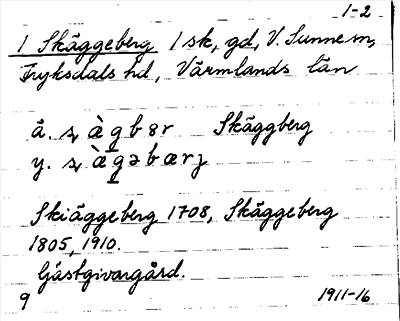 1-2
1 Skäggeberg 1 sk, gd, V. Sunne sn,
Fryksdals hd, Värmlands län
å. ʂ à g b ɞ r Skäggberg
y. ʂ à g ə b æ r j
Skiäggeberg 1708, Skäggeberg
1805, 1910.
Gästgivargård.
9 1911-16